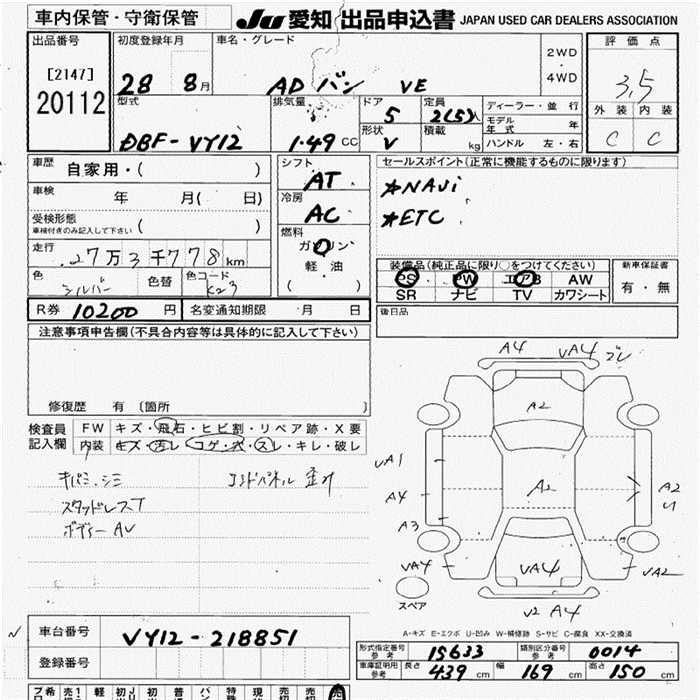 車内保管・守衛保管
JU 愛知 出品申込書 JAPAN USED CAR DEALERS ASSOCIATION
出品番号
[2147]
20112
初度登録年月
28 8月
車名・グレード
AD バン VE
2WD
・
4WD
評価点
3.5
外装 内装
C C
型式
DBF-VY12
排気量
1.49 CC
ドア
5
形状
V
定員
2(5)人
積載
kg
ディーラー・並行
モデル年式 年
ハンドル 左・右
車歴 自家用・( )
車検 年 月( 日)
受検形態
車検付きのみ記入して下さい ( )
走行 27万3千778km
色 シルバー 色替 色コード K23
シフト
AT
冷房
AC
燃料
ガソリン
軽・油
( )
セールスポイント(正常に機能するものに限ります)
★NAVi
★ETC
装備品(純正品に限り○をつけてください)
PS PW エアB AW
SR ナビ TV カワシート
新車保証書
有・無
R券 10200 円 名変通知期限 月 日
後日品
注意事項申告欄(不具合内容等は具体的に記入して下さい)
修復歴 有 [箇所 ]
検査員記入欄
FW キズ・飛石・ヒビ割・リペア跡・X要
内装 キズ・汚レ・コゲ・穴・スレ・キレ・破レ
キバミ・シミ
スタッドレスT
ボディーAV
エンドパネル 歪み
A4 VA4
A2
UA1
A2
A4
A2
U
A3
VA4
VA4
UA2
スペア
V2 A4
A-キズ E-エクボ U-凹み W-補修跡 S-サビ C-腐食 XX-交換済
車台番号 VY12-218851
登録番号
形式指定番号参考 15633 類別区分番号参考 0014
車庫証明用参考 長さ 439 cm 幅 169 cm 高さ 150 cm